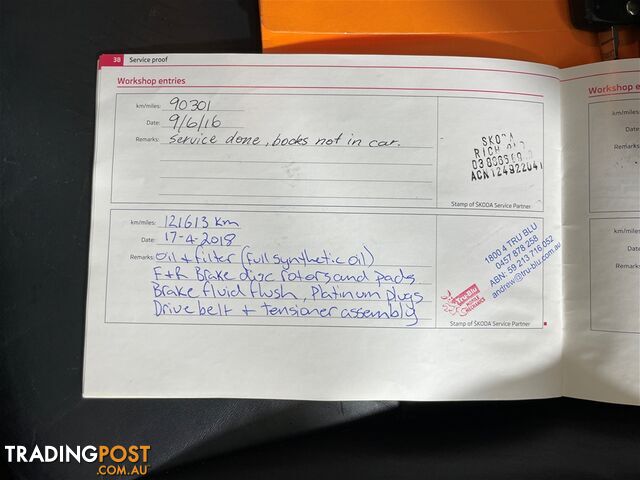 38 Service proof
Workshop entries
km/miles: 90301
Date: 9/6/16
Remarks: Service done, books not in car.
SKODA
ACN 124922041
Stamp of ŠKODA Service Partner
km/miles: 121613 Km
Date: 17-4-2018
Remarks: Oil + filter (full synthetic oil)
F+R Brake disc rotors and pads
Brake fluid flush, Platinum plugs
Drive belt + tensioner assembly
1800 4 TRU BLU
0457 878 258
ABN: 59 213 716 052
andrew@tru-blu.com.au
tru-blu
MOBILE
MECHANICS
Stamp of ŠKODA Service Partner
Workshop en
km/miles:
Date:
Remarks:
km/miles:
Date:
Remarks:
TRADINGPOST
.COM.AU